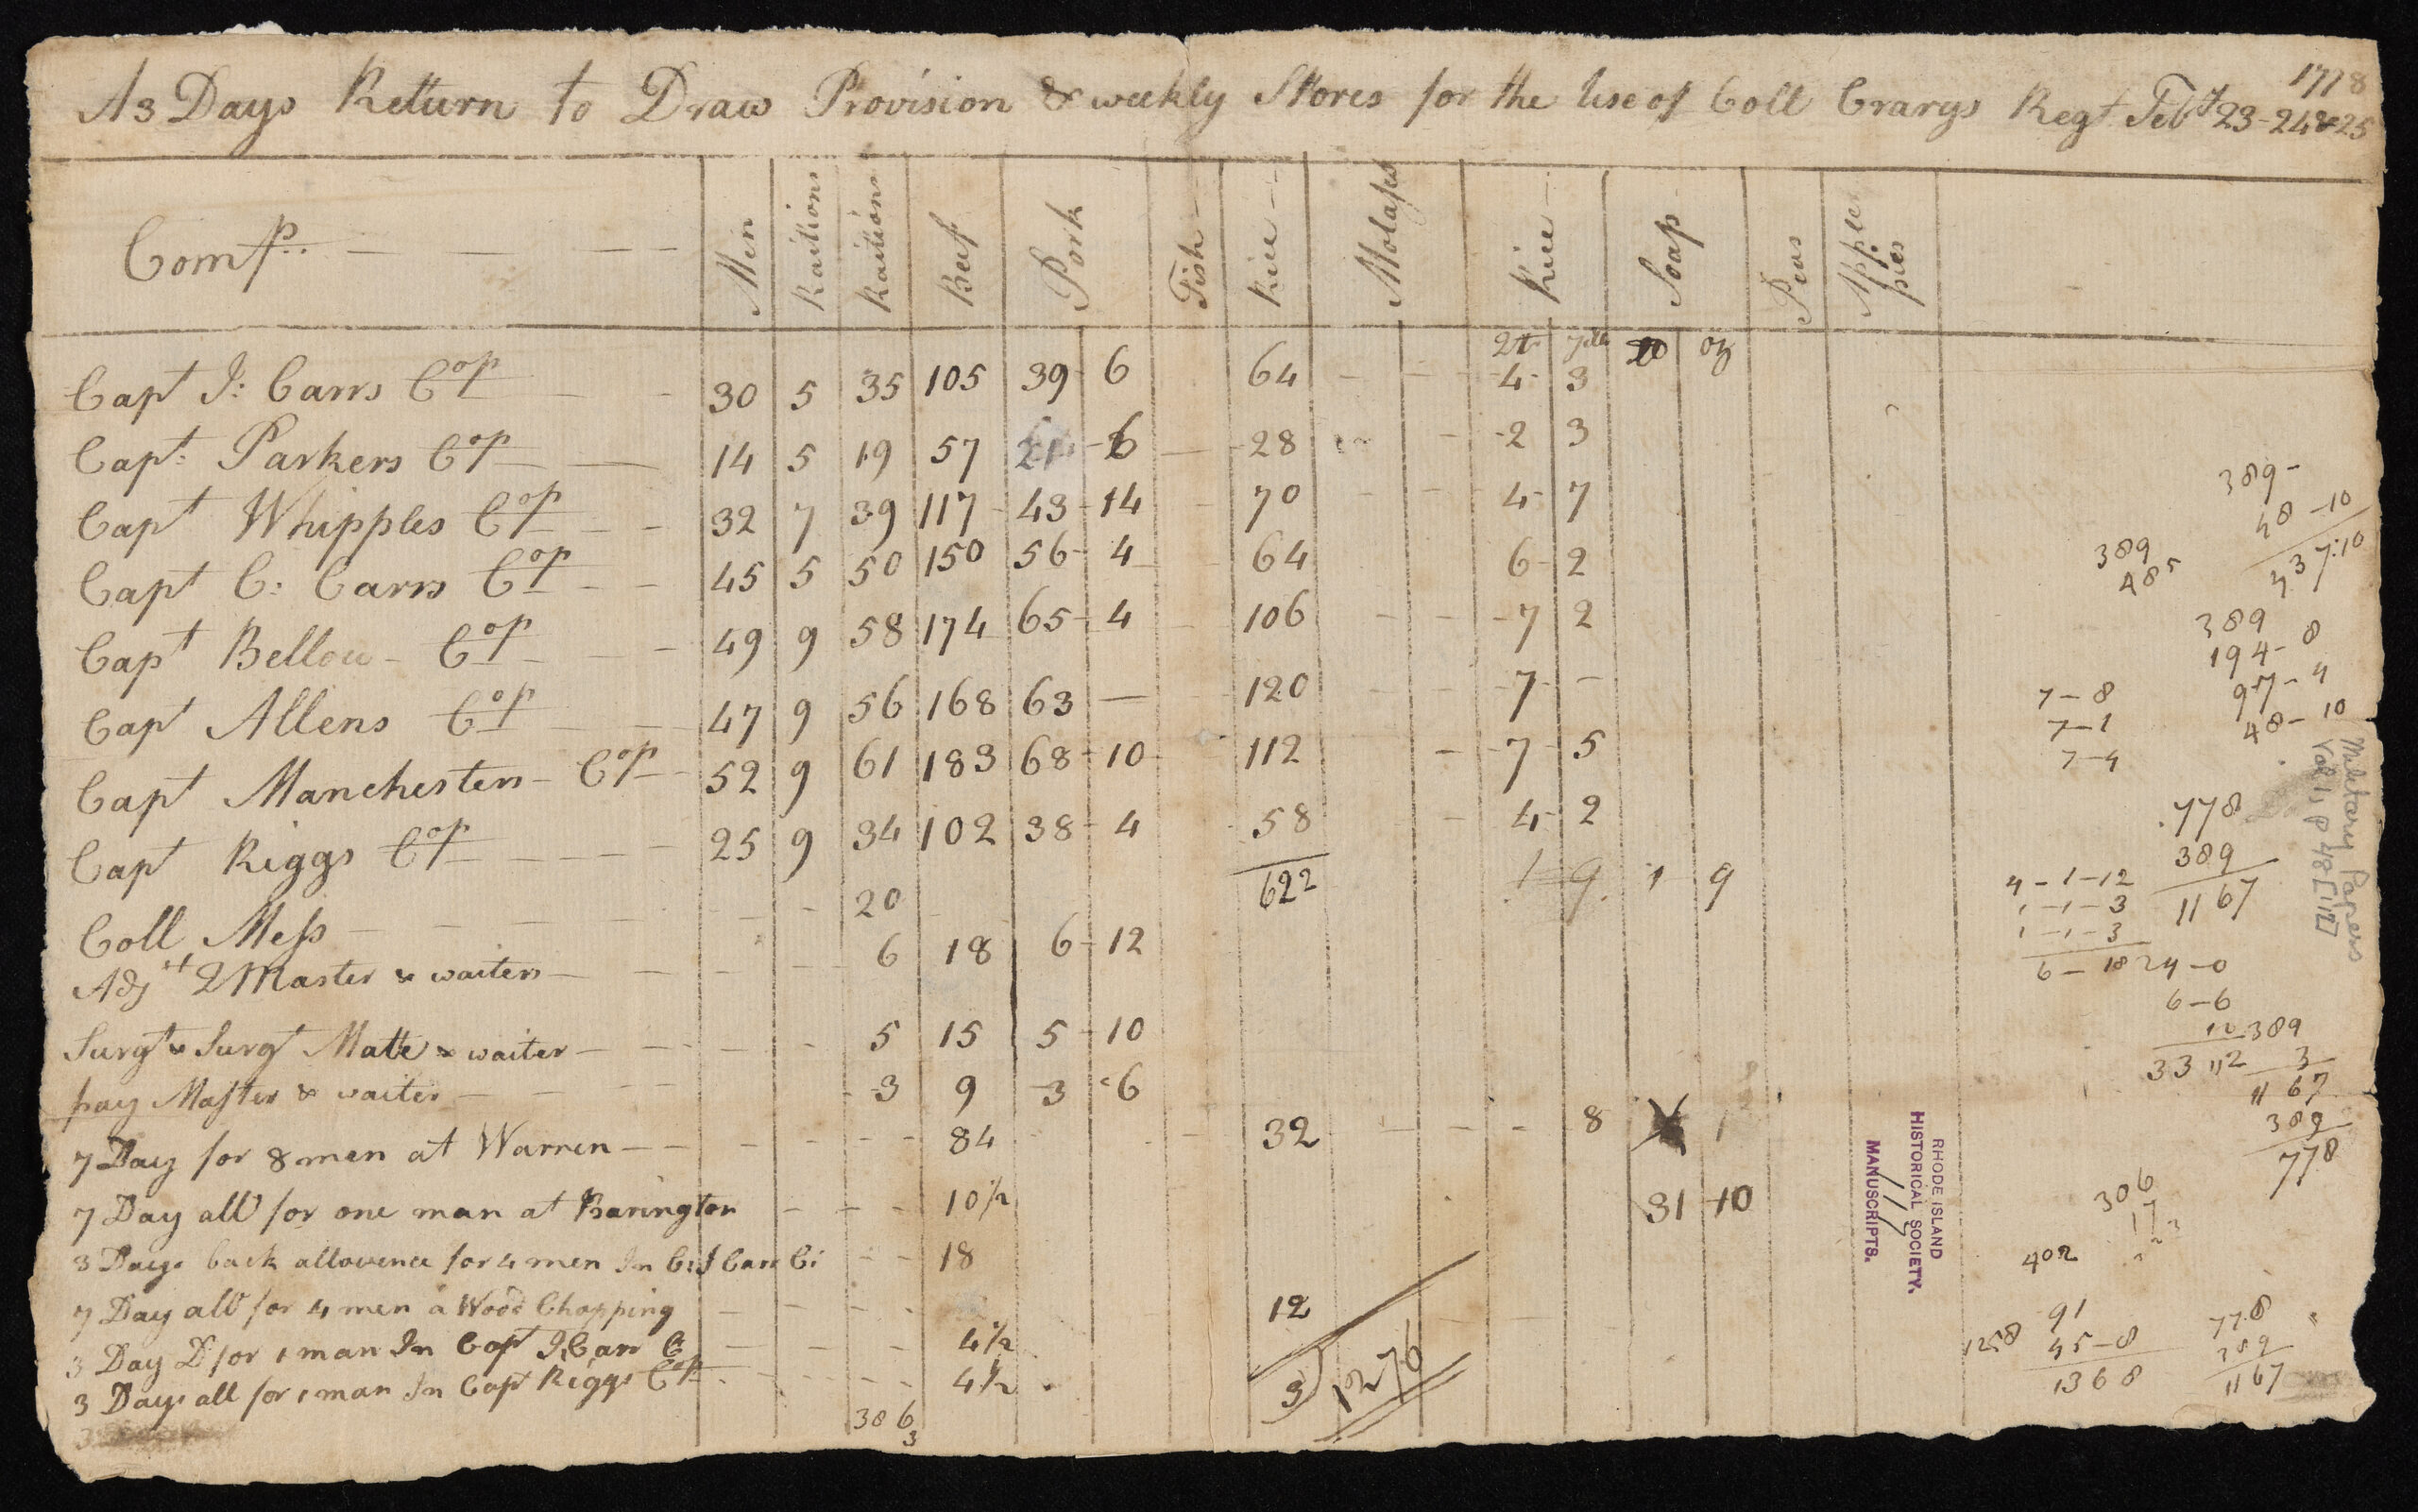 1778
A 3 Days Return to Draw Provision & weekly Stores for the use of Coll Crarys Regt Feby 23-24&25
Comps. Men Raitions Raitions Beef Pork Fish Rice Molases Rice Soap Peas Apple pies
qt gills lb oz
Capt J: Carrs Cop 30 5 35 105 39 - 6 64 4 - 3
Capt: Parkers Cop 14 5 19 57 21 - 6 28 2 3
Capt Whipples Cop 32 7 39 117 43 - 14 70 4 - 7
Capt C: Carrs Cop 45 5 50 150 56 - 4 64 6 - 2
Capt Bellou - Cop 49 9 58 174 65 - 4 106 7 2
Capt Allens Cop 47 9 56 168 63 — 120 7 -
Capt Manchesters - Cop 52 9 61 183 68 - 10 112 7 - 5
Capt Riggs Cop 25 9 34 102 38 - 4 58 4 - 2
622 1 9 1 9
Coll Mess 20
Adjt QMaster & waiters 6 18 6 - 12
Surgt & Surgt Matte & waiter 5 15 5 - 10
pay Master & waiter 3 9 3 - 6
7 Day for 8 men at Warren 84 32 8 1
7 Day all for one man at Barington 10½ 31 - 10
3 Days back allowence for 4 men In C: J Carr C: 18
7 Day all for 4 men a Wood Chopping 12
3 Day D for 1 man In Capt J, Carr C 4½
3) 1276
3 Days all for 1 man In Capt Riggs Cop 4½
306
3
389 -
48 - 10
437:10
389
485
389
194 - 8
97 - 4
48 - 10
7 - 8
7 - 1
7 - 4
778
389
1167
4 - 1 - 12
1 - 1 - 3
1 - 1 - 3
6 - 18
24 - 0
6 - 6
389
3
1167
33 112
389
778
306
402
91
1258 45 - 8
1368
778
389
1167
Miletary Papers
Vol 1, p 48 [112]
RHODE ISLAND
HISTORICAL SOCIETY.
MANUSCRIPTS.